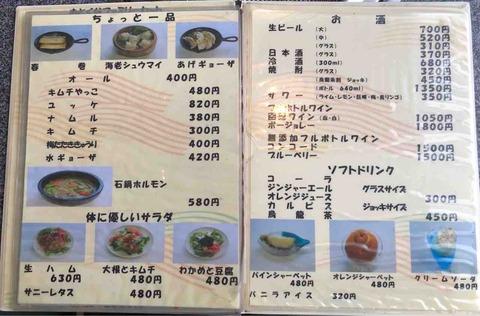 ちょっと一品
春巻 海老シュウマイ あげギョーザ
オール 400円
キムチやっこ 480円
ユッケ 820円
ナムル 380円
キムチ 300円
梅たたききゅうり 400円
水ギョーザ 420円
石鍋ホルモン
580円
体に優しいサラダ
生ハム 630円
大根とキムチ 480円
わかめと豆腐 480円
サニーレタス 480円
お酒
生ビール (大) 700円
(中) 520円
日本酒 (グラス) 310円
(グラス) 370円
冷酒 (300ml) 680円
焼酎 (グラス) 320円
(烏龍茶割 ジョッキ) 450円
(ボトル 640ml) 1350円
サワー (ライム・レモン・巨峰・梅・青リンゴ) 350円
フルボトルワイン
(赤・白) 1050円
ボージョレー 1800円
無添加フルボトルワイン
コンコード 1500円
ブルーベリー 1500円
ソフトドリンク
コーラ
ジンジャーエール グラスサイズ
オレンジジュース 300円
カルピス ジョッキサイズ
烏龍茶 450円
パインシャーベット 480円
オレンジシャーベット 480円
クリームソーダ 480円
バニラアイス 320円